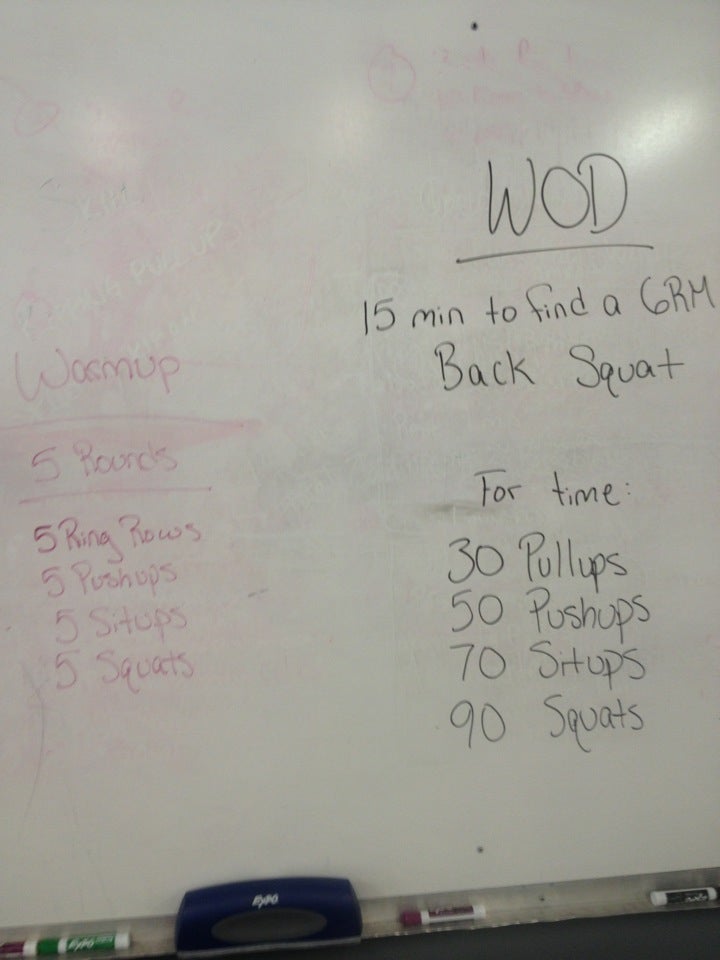 Warmup
5 Rounds
5 Ring Rows
5 Pushups
5 Situps
5 Squats
WOD
15 min to find a 6RM
Back Squat
For time:
30 Pullups
50 Pushups
70 Situps
90 Squats
EXPO
EXPO